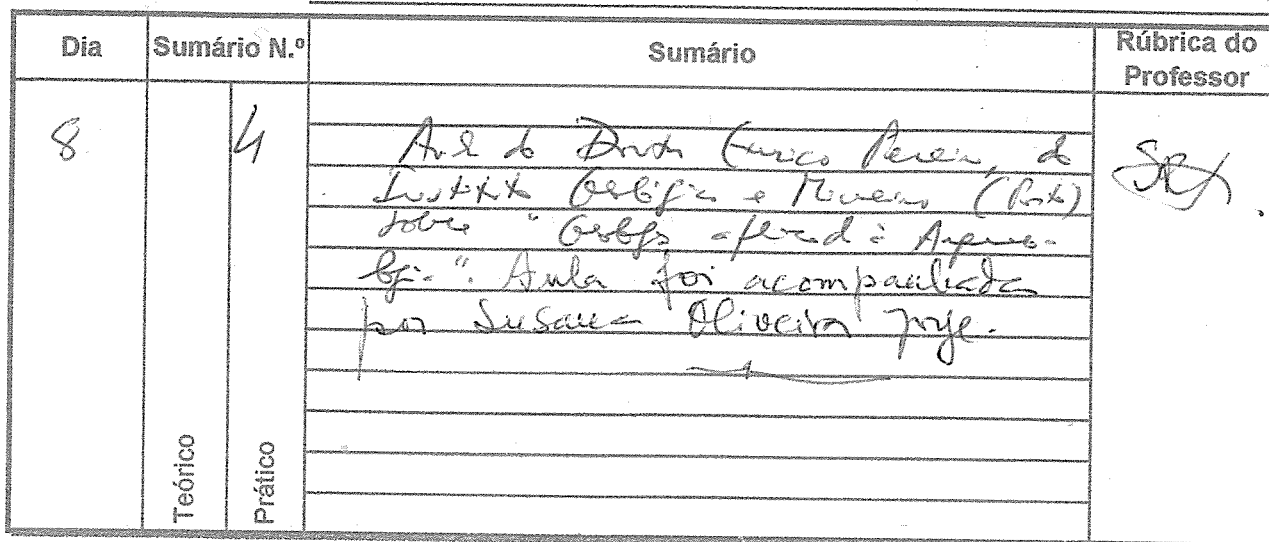 Dia Sumário N.º Sumário Rúbrica do Professor
8 4
Aula do Doutor Eurico Pereira, do
Instituto Geológico e Mineiro (Porto)
sobre "Geologia aplicada à Arqueo-
logia". Aula foi acompanhada
por Susana Oliveira Jorge.
Teórico
Prático